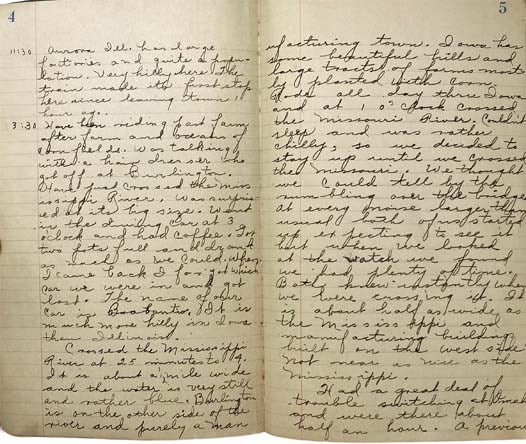 4
11:30 Aurora Ill. has large
factories and quite a popu-
lation. Very hilly here. The
train made its first stop
here since leaving town 1
hour ago.
3:30 Have been riding past farm
after farm and oceans of
corn fields. Was talking
with a hair dresser who
got off at Burlington.
Have just crossed the Miss
issippi River. Was surpris-
ed at its big size. Went
in the dining car at 2
o'clock and had coffee. For
two pots full and drank
as much as we could. When
I came back I forgot which
car we were in and got
lost. The name of our
car is It is
much more hilly in Iowa
than Illinois.
Crossed the Mississippi
River at 25 minutes to 4.
It is about a mile wide
and the water is very still
and rather blue. Burlington
is on the other side of the
river and purely a man
5
ufacturing town. Iowa has
some beautiful hills and
large tracts of farms most-
ly planted with corn.
Rode all day thru Iowa
and at 10 o'clock crossed
the Missouri River. Couldn't
sleep and was rather
chilly, so we decided to
stay up until we crossed
the Missouri. We thought
we could tell by the
rumbling over the bridge
at every noise larger than
usual both of us started
up expecting to see it
but when we looked
at the watch we found
we had plenty of time.
Both knew instantly when
we were crossing it. It
is about half as wide as
the Mississippi and
manufacturing buildings
built on the west side
not near as nice as the
Mississippi.
Had a great deal of
trouble switching at Omaha
and were there about
half an hour. A previous